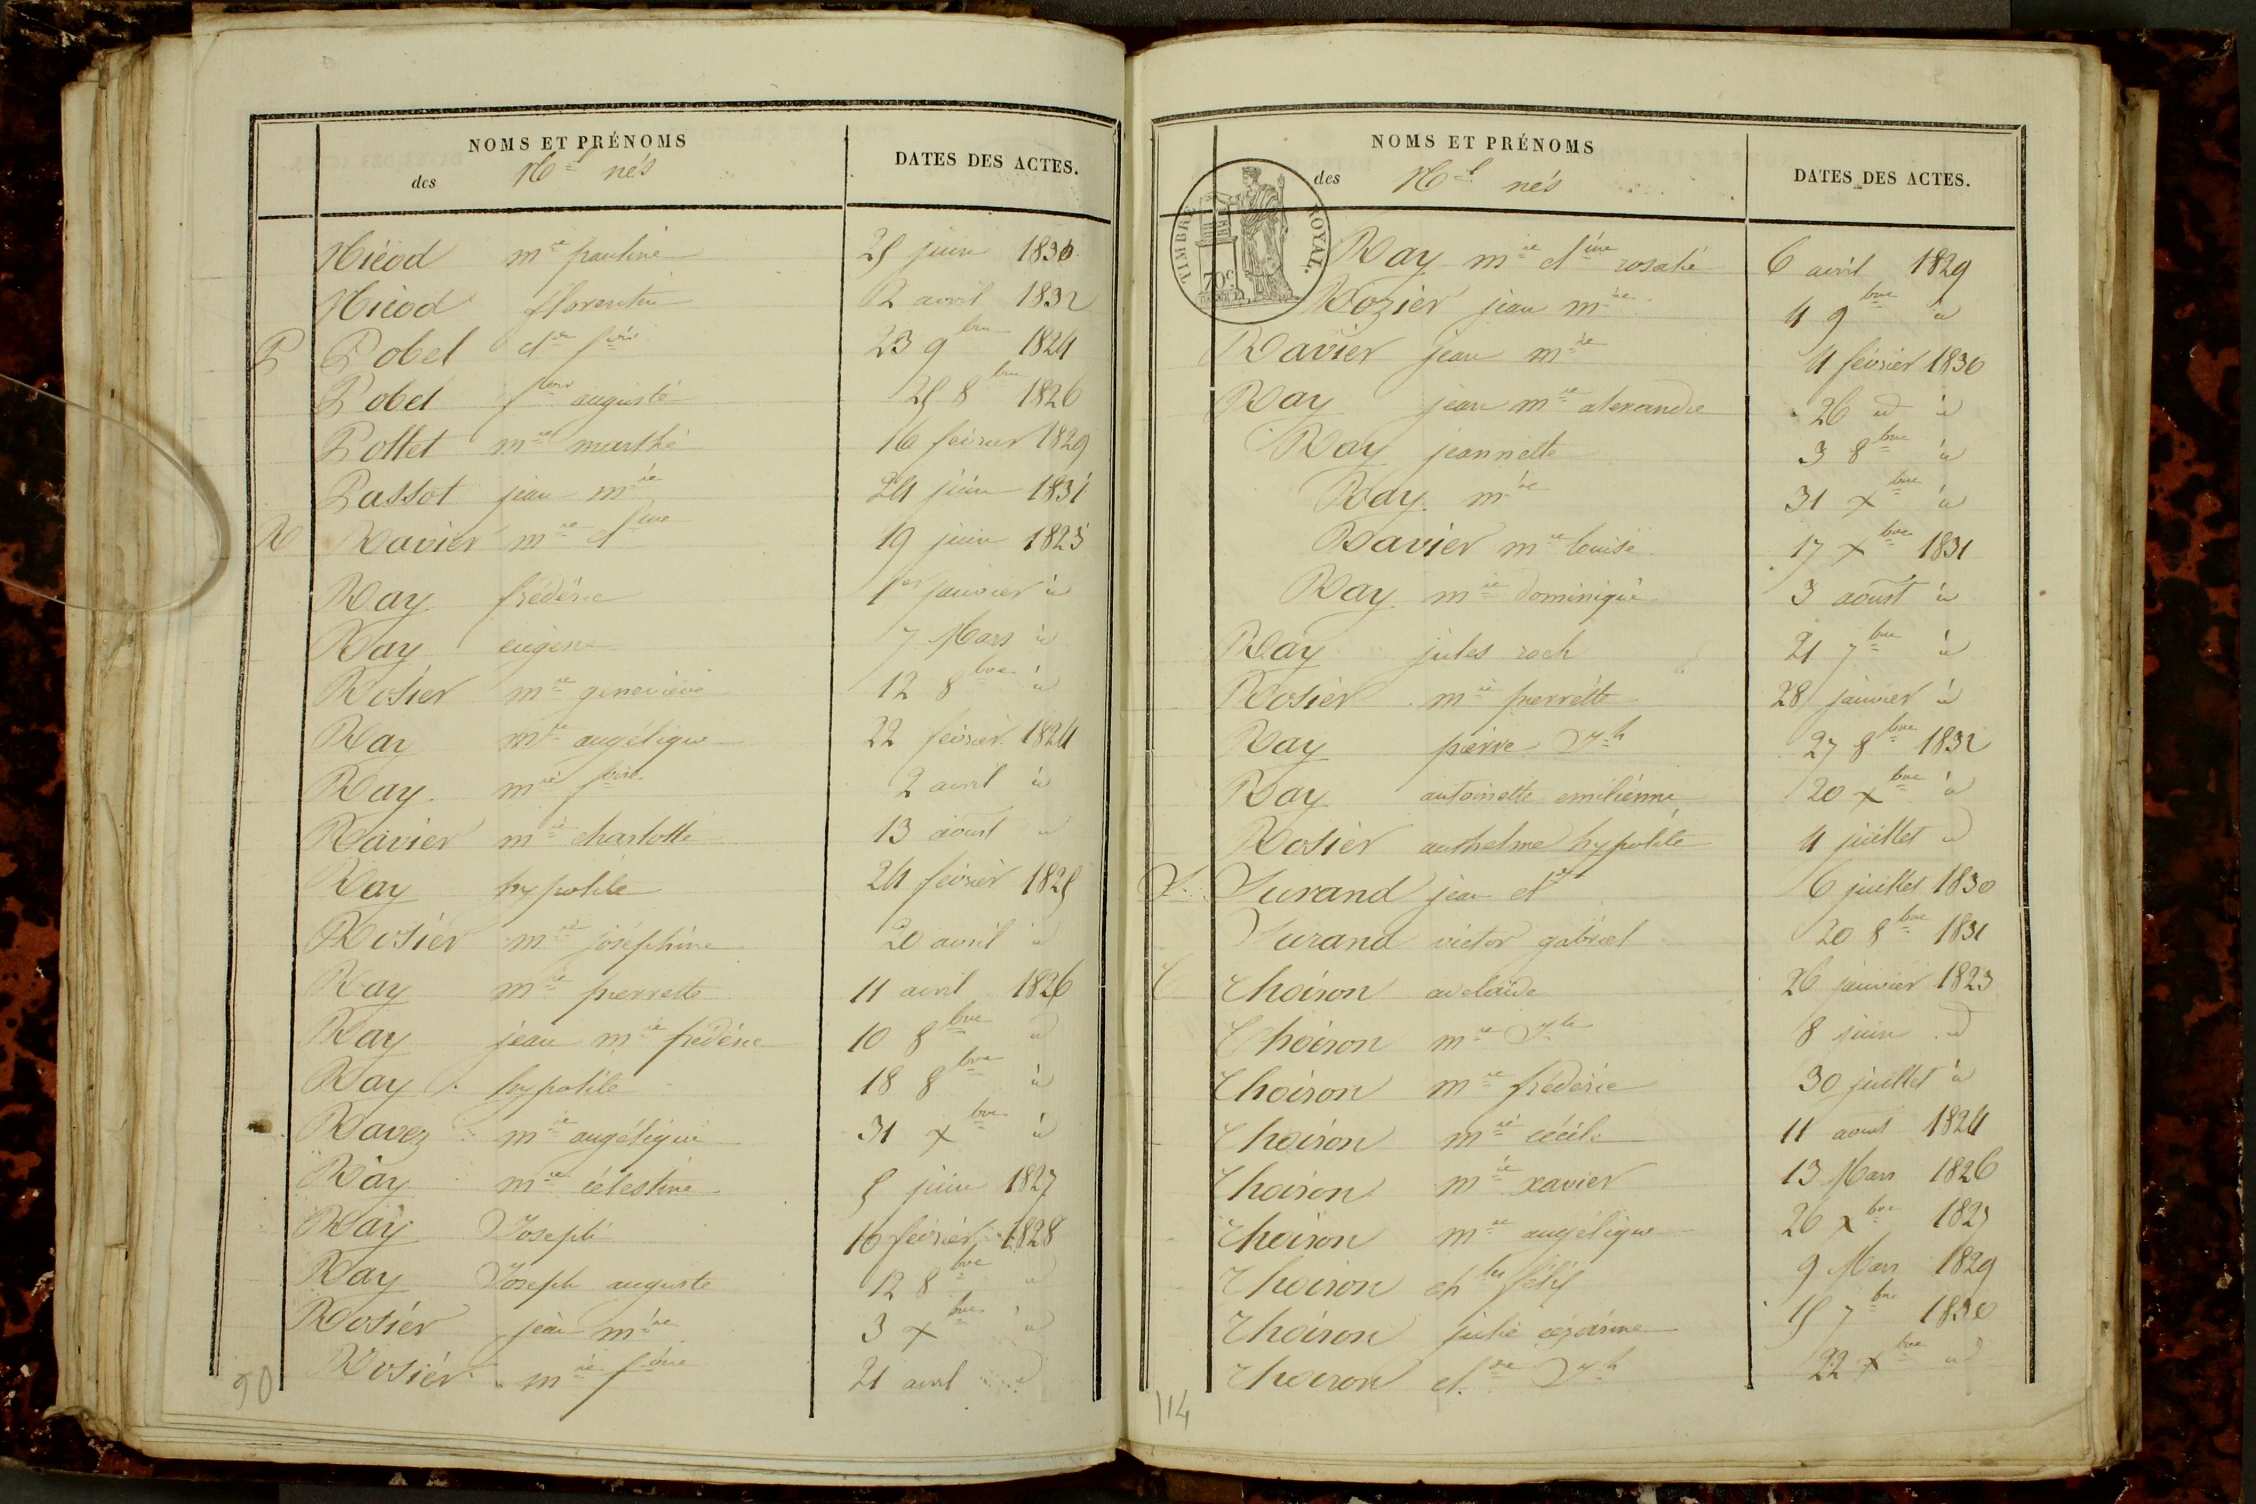 NOMS ET PRÉNOMS
des Nés
DATES DES ACTES.
Nicod mie pauline 25 juin 1830
Nicod florentin 12 avril 1832
P Pobel cde fois 23 9bre 1824
Pobel auguste 25 8bre 1826
Pottet mie marthe 16 février 1829
Passot jean mie 24 juin 1831
R Ravier mie cline 19 juin 1823
Ray frédéric 1er janvier id
Ray eugene 7 Mars id
Rosier mie genevieve 12 8bre id
Ray mie angélique 22 février 1824
Ray mie foise 2 avril id
Ravier mie charlotte 13 aoust id
Ray hypolite 24 février 1825
Rosier mie joséphine 20 avril id
Ray mie pierrette 11 avril 1826
Ray jean mie frédéric 10 8bre id
Ray hypolite 18 8bre id
Ravez mie angélique 31 xbre id
Ray mie célestine 5 juin 1827
Ray Joseph 16 février 1828
Ray Joseph auguste 12 8bre id
Rosier jean mie 3 xbre id
Rosier mie foise 21 avril id
90
NOMS ET PRÉNOMS
des nés
DATES DES ACTES.
TIMBRE ROYAL.
70c
Ray mie cline rosalie 6 avril 1829
Rozier jean mie 4 9bre id
Ravier jean mie 4 février 1830
Ray jean mie alexandre 26 id id
Ray jeannette 3 8bre id
Ray mie 31 xbre id
Ravier mie louise 17 xbre 1831
Ray mie dominique 3 aoust id
Ray jules roch 21 7bre id
Rosier mie pierrette 28 janvier id
Ray pierre Jh 27 8bre 1832
Ray antoinette emilienne 20 xbre id
Rosier anthelme hypolite 4 juillet id
S. Surand jean cl 6 juillet 1830
Surand victor gabriel 20 8bre 1831
T Thoison adelaide 26 janvier 1823
Thoison mie Jh 8 juin id
Thoison mie frédéric 30 juillet id
Thoison mie cécile 11 aoust 1824
Thoison mie xavier 13 Mars 1826
Thoison mie angélique 26 xbre 1825
Thoison félix 9 Mars 1829
Thoison julie césarine 15 7bre 1830
Thoison cl. Jh 22 xbre id
114